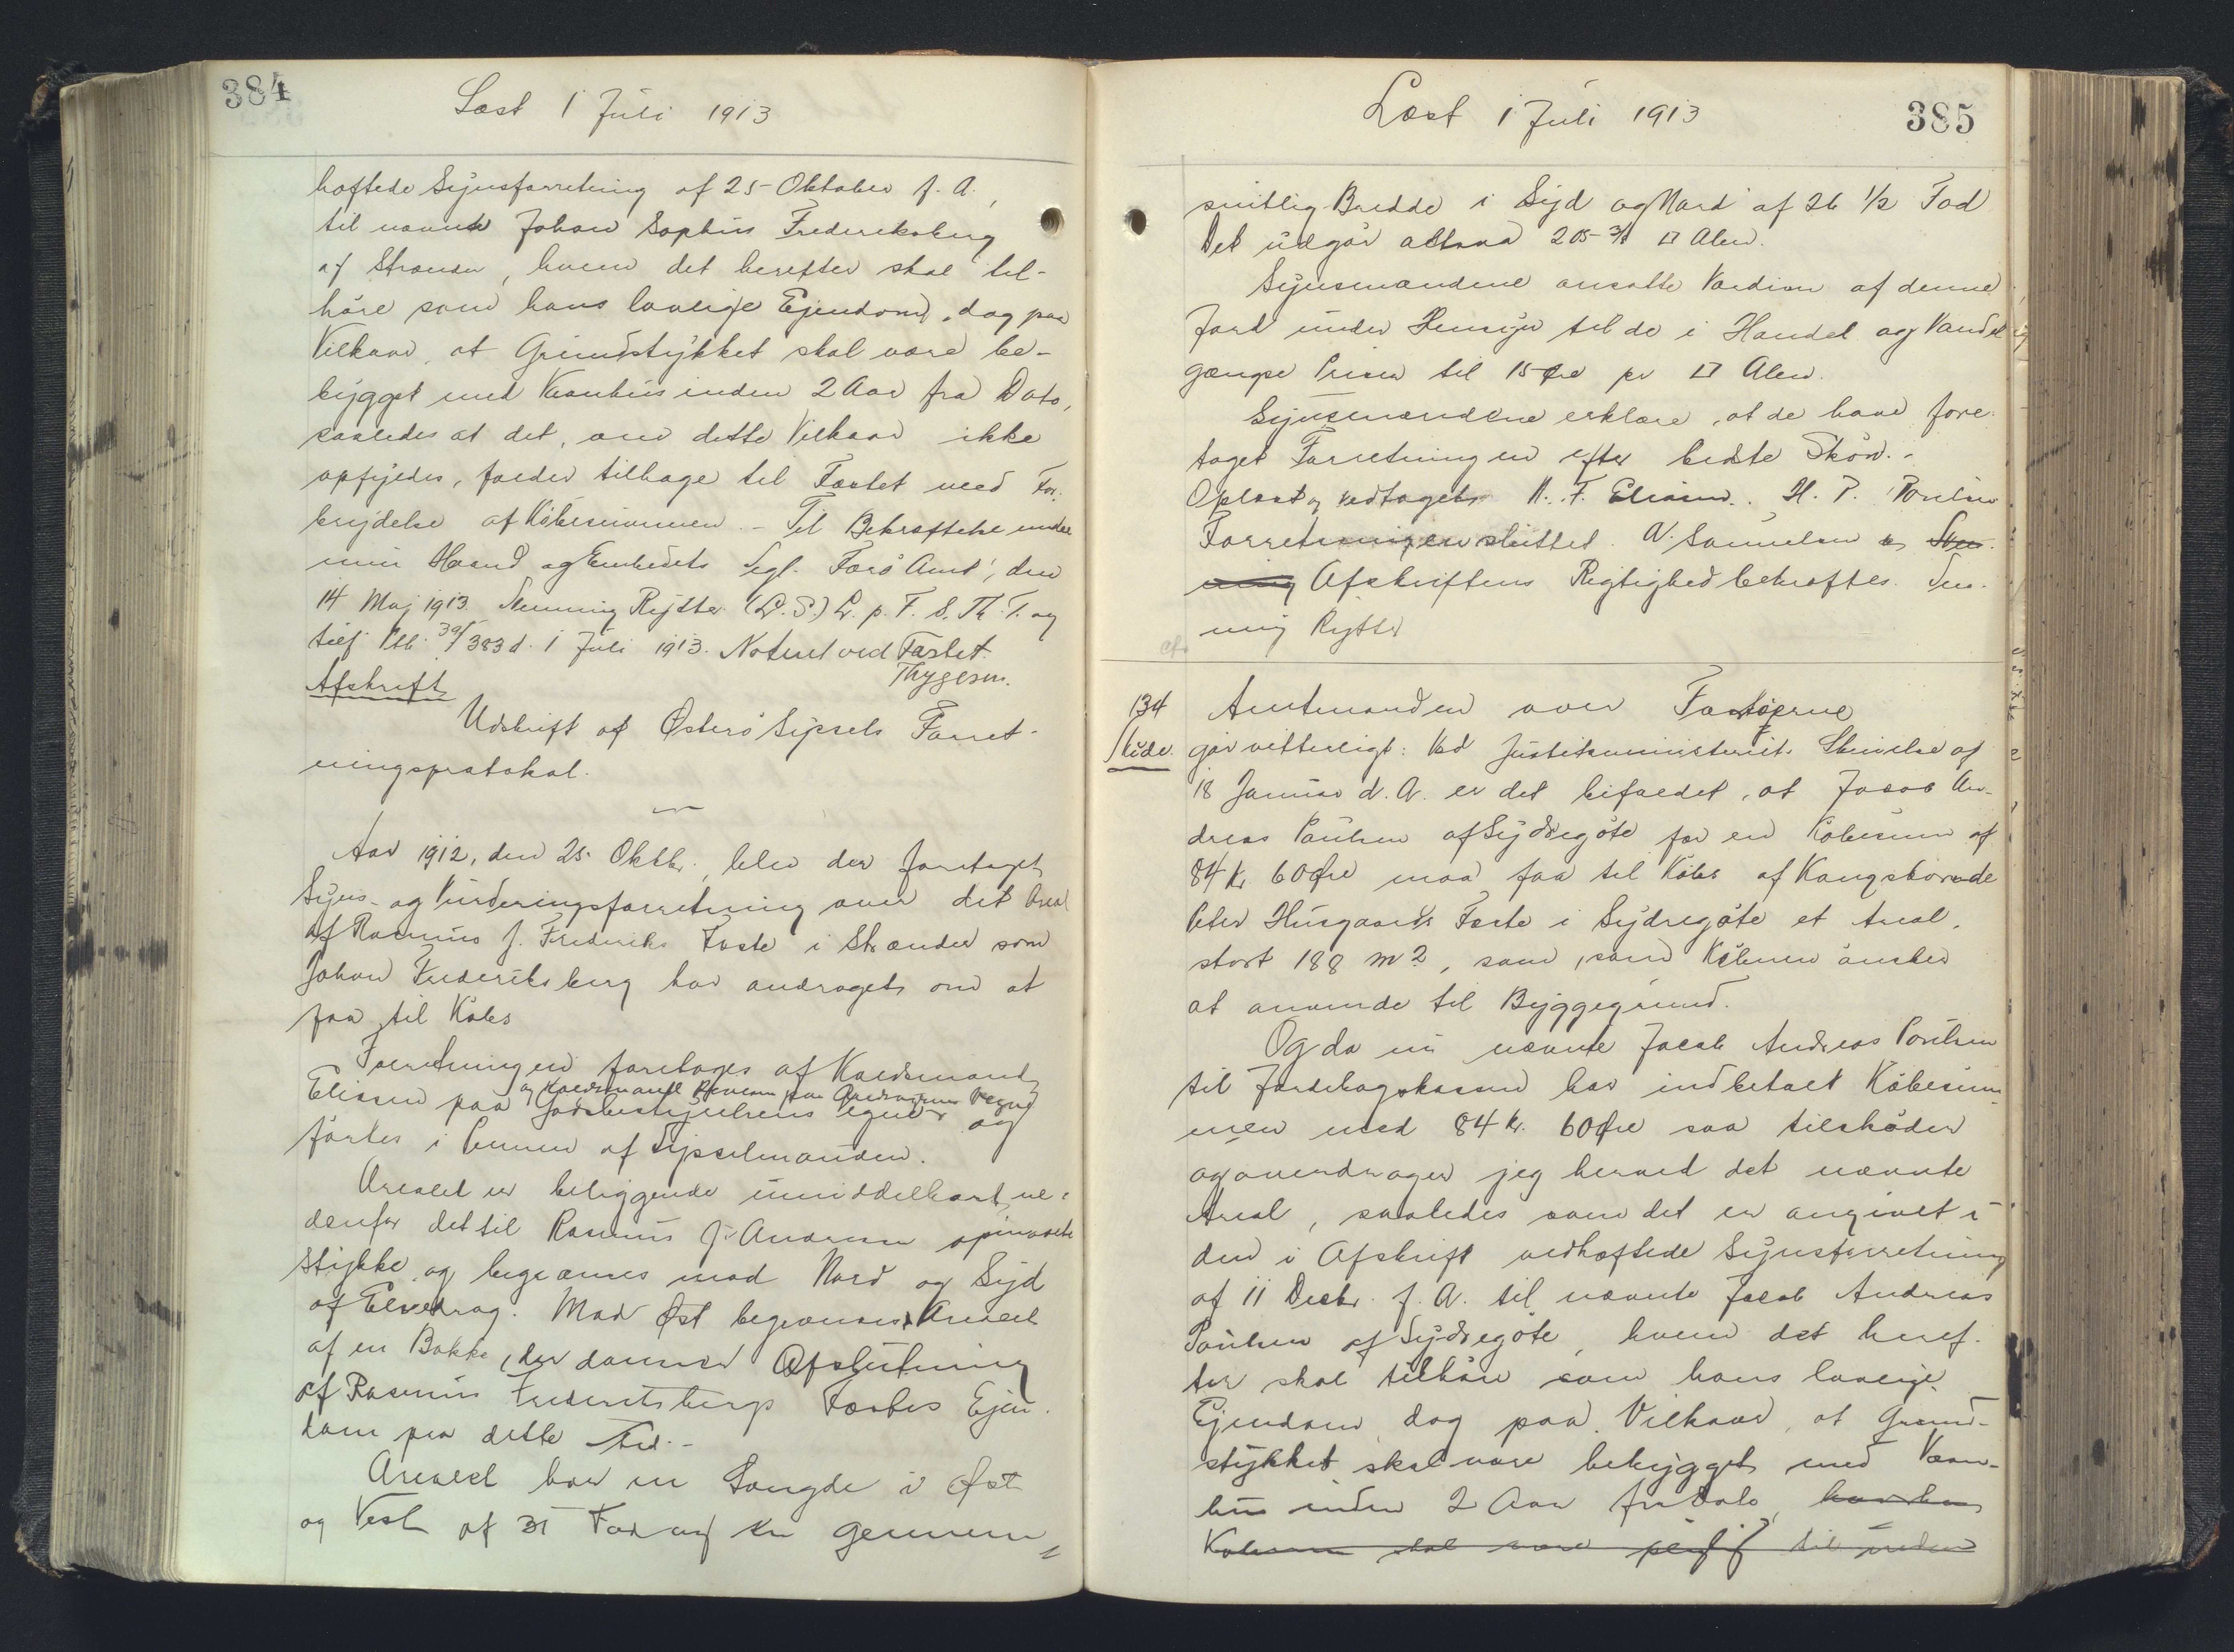 384
Læst 1 Juli 1913
hæftede Synsforretning af 25 Oktober f. A.,
til nævnte Johan Sophus Frederiksberg
af Strænder, hvem det herefter skal til-
høre som hans lovlige Ejendom, dog paa
Vilkaar, at Grundstykket skal være be-
bygget med Vaanhus inden 2 Aar fra Dato,
saaledes at det, om dette Vilkaar ikke
opfyldes, falder tilbage til Fæstet med For-
brydelse af Købesummen. - Til Bekræftelse under
min Haand og Embedets Segl. Færø Amt, den
14 Maj 1913. Svenning Rytter (L.S.) L. p. F. S. Th. T. og
tilf. Ptk. 39/383 d. 1 Juli 1913. Noteret ved Fæstet.
Thygesen.
Afskrift
Udskrift af Østerø Syssels Forret-
ningsprotokol.
Aar 1912, den 25. Oktbr., blev der foretaget
Syns- og Vurderingsforretning over det Areal
af Rasmus J. Frederiks Fæste i Strænder som
Johan Frederiksberg har andraget om at
faa til Købs
Forretningen foretages af Voldsmand
og Voldsmand Poulsen paa Andragerens Vegne
Eliasen paa Jordbestyrelsens Vegne og
førtes i Pennen af Sysselmanden.
Arealet er beliggende umiddelbart ne-
denfor det til Rasmus J. Andresen opmaalte
Stykke og begrænses mod Nord og Syd
af Elvedrag. Mod Øst begrænses Arealet
af en Bakke, der danner Afslutning
af Rasmus Frederiksbergs Fæstes Ejen-
dom paa dette Sted. -
Arealet har en Længde i Øst
og Vest af 31 Fod og en gennem-
Læst 1 Juli 1913
385
snitlig Bredde i Syd og Nord af 26 1/2 Fod
Det udgør altsaa 205 3/8 □ Alen.
Synsmændene ansatte Værdien af denne
Jord under Hensyn til de i Handel og Vandel
gængse Priser til 15 Øre pr □ Alen.
Synsmændene erklære, at de have fore-
taget Forretningen efter bedste Skøn. -
Oplæst og vedtaget. N. F. Eliasen. H. P. Poulsen
Forretningen sluttet. N. Samuelsen
Afskriftens Rigtighed bekræftes. Sven-
ning Rytter
134
Skøde.
Amtmanden over Færøerne
gør vitterligt: Ved Justitsministeriets Skrivelse af
18 Januar d. A. er det bifaldet, at Jacob An-
dreas Poulsen af Sydregøte for en Købesum af
84 Kr. 60 Øre maa faa til Købs af Kongsbonde
Peter Husgaards Fæste i Sydregøte et Areal,
stort 188 m2, som, som Køberen ønsker
at anvende til Byggegrund.
Og da nu nævnte Jacob Andreas Poulsen
til Jordebogskassen har indbetalt Købesum-
men med 84 Kr. 60 Øre saa tilskøder
og overdrager jeg herved det nævnte
Areal, saaledes som det er angivet i
den i Afskrift vedhæftede Synsforretning
af 11 Decbr. f. A. til nævnte Jacob Andreas
Poulsen af Sydregøte, hvem det heref-
ter skal tilhøre som hans lovlige
Ejendom dog paa Vilkaar, at Grund-
stykket skal være bebygget med Vaan-
hus inden 2 Aar fra Dato,
skal være til inden